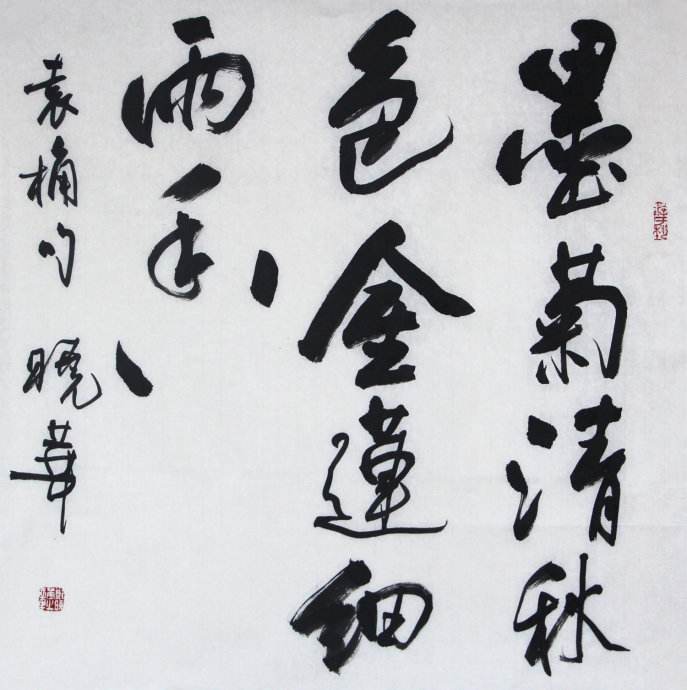 墨菊清秋
色金蓮細
雨香
袁桷句 曉華